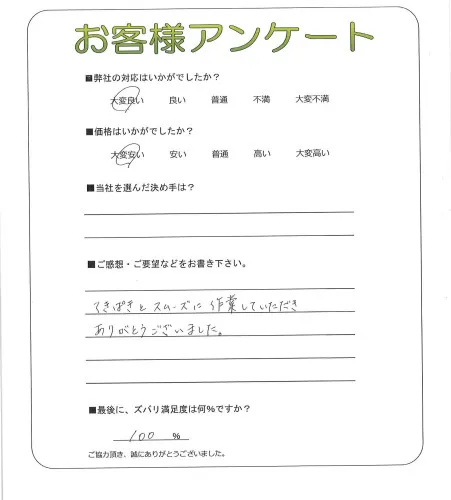 お客様アンケート
■弊社の対応はいかがでしたか？
大変良い 良い 普通 不満 大変不満
■価格はいかがでしたか？
大変安い 安い 普通 高い 大変高い
■当社を選んだ決め手は？
■ご感想・ご要望などをお書き下さい。
てきぱきとスムーズに作業していただき
ありがとうございました。
■最後に、ズバリ満足度は何%ですか？
100 %
ご協力頂き、誠にありがとうございました。